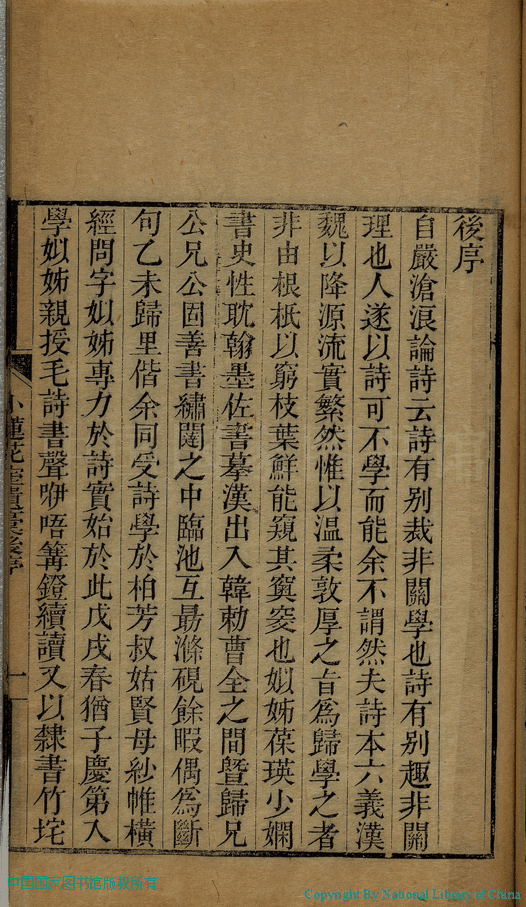 後序
自嚴滄浪論詩云詩有別裁非關學也詩有別趣非關
理也人遂以詩可不學而能余不謂然夫詩本六義漢
魏以降源流實繁然惟以溫柔敦厚之旨爲歸學之者
非由根柢以窮枝葉鮮能窺其窔也姒姊葆瑛少嫻
書史性耽翰墨佐書摹漢出入韓勅曹全之間曁歸兄
公兄公固善書繡闥之中臨池互勗滌硯餘暇偶爲斷
句乙未歸里偕余同受詩學於柏芳叔姑賢母紗帷橫
經問字姒姊專力於詩實始於此戊戌春猶子慶第入
學姒姊親授毛詩書聲咿唔篝鐙續讀又以隸書竹垞
小蓮花室遺稾後序
一
中国国家图书馆版权所有
Copyright By National Library of China